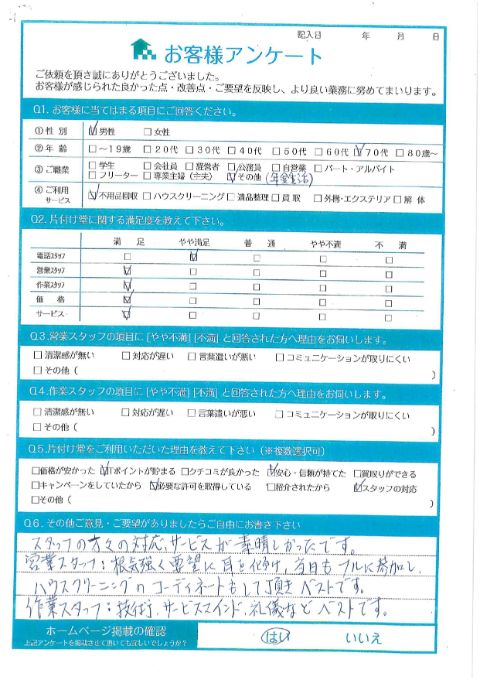 記入日　年　月　日
お客様アンケート
ご依頼を頂き誠にありがとうございました。
お客様が感じられた良かった点・改善点・ご要望を反映し、より良い業務に努めてまいります。
Q1. お客様に当てはまる項目にご回答ください。
①性 別 ☑男性 □女性
②年 齢 □～19歳 □20代 □30代 □40代 □50代 □60代 ☑70代 □80歳～
③ご職業 □学生 □会社員 □経営者 □公務員 □自営業 □パート・アルバイト
□フリーター □専業主婦(主夫) ☑その他(年金生活)
④ご利用サービス ☑不用品回収 □ハウスクリーニング □遺品整理 □買取 □外構・エクステリア □解体
Q2. 片付け堂に関する満足度を教えて下さい。
満足 やや満足 普通 やや不満 不満
電話スタッフ □ ☑ □ □ □
営業スタッフ ☑ □ □ □ □
作業スタッフ ☑ □ □ □ □
価格 ☑ □ □ □ □
サービス ☑ □ □ □ □
Q3. 営業スタッフの項目に [やや不満] [不満] と回答された方へ理由をお伺いします。
□清潔感が無い □対応が遅い □言葉遣いが悪い □コミュニケーションが取りにくい
□その他( )
Q4. 作業スタッフの項目に [やや不満] [不満] と回答された方へ理由をお伺いします。
□清潔感が無い □対応が遅い □言葉遣いが悪い □コミュニケーションが取りにくい
□その他( )
Q5. 片付け堂をご利用いただいた理由を教えて下さい（※複数選択可）
□価格が安かった ☑Tポイントが貯まる □クチコミが良かった ☑安心・信頼が持てた □買取りができる
□キャンペーンをしていたから ☑必要な許可を取得している □紹介されたから ☑スタッフの対応
□その他( )
Q6. その他ご意見・ご要望がありましたらご自由にお書き下さい
スタッフの方々の対応、サービスが素晴しかったです。
営業スタッフ：根気強く要望に耳を傾け、当日もフルに参加し、
ハウスクリーニングのコーディネートもして頂きベストです。
作業スタッフ：技術、サービスマインド、礼儀などベストです。
ホームページ掲載の確認
上記アンケートを掲載させて頂いても宜しいでしょうか？
はい いいえ